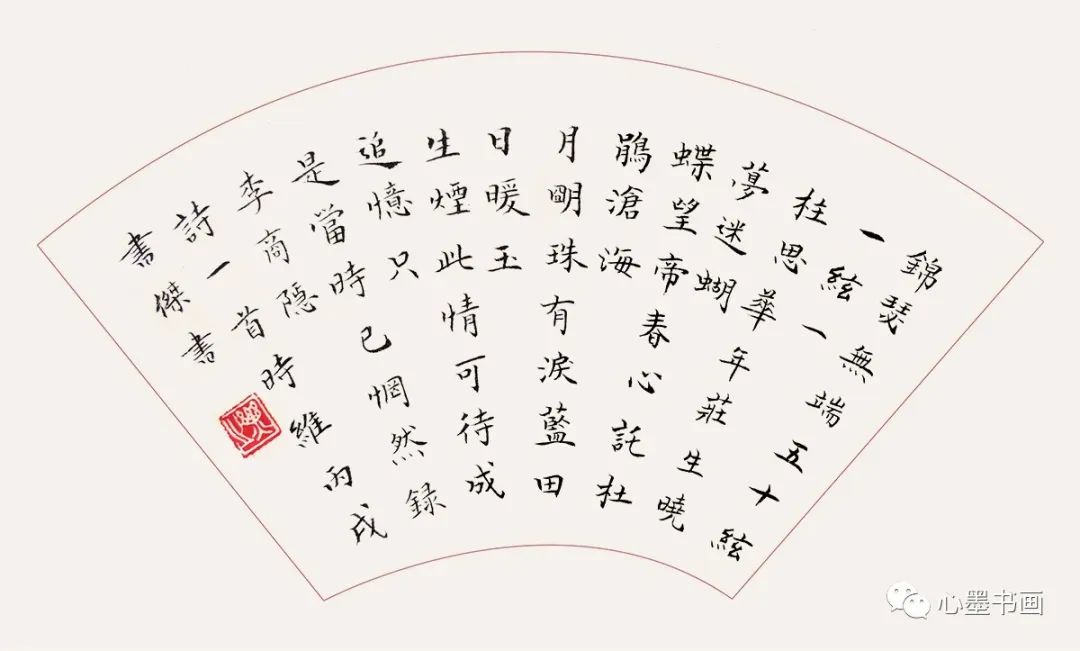 錦瑟無端五十絃
一絃一
柱思華年莊生曉
夢迷蝴
蝶望帝春心託杜
鵑滄海
月明珠有淚藍田
日暖玉
生煙此情可待成
追憶只
是當時已惘然録
李商隱
詩一首時維丙戌
書傑書
心墨书画